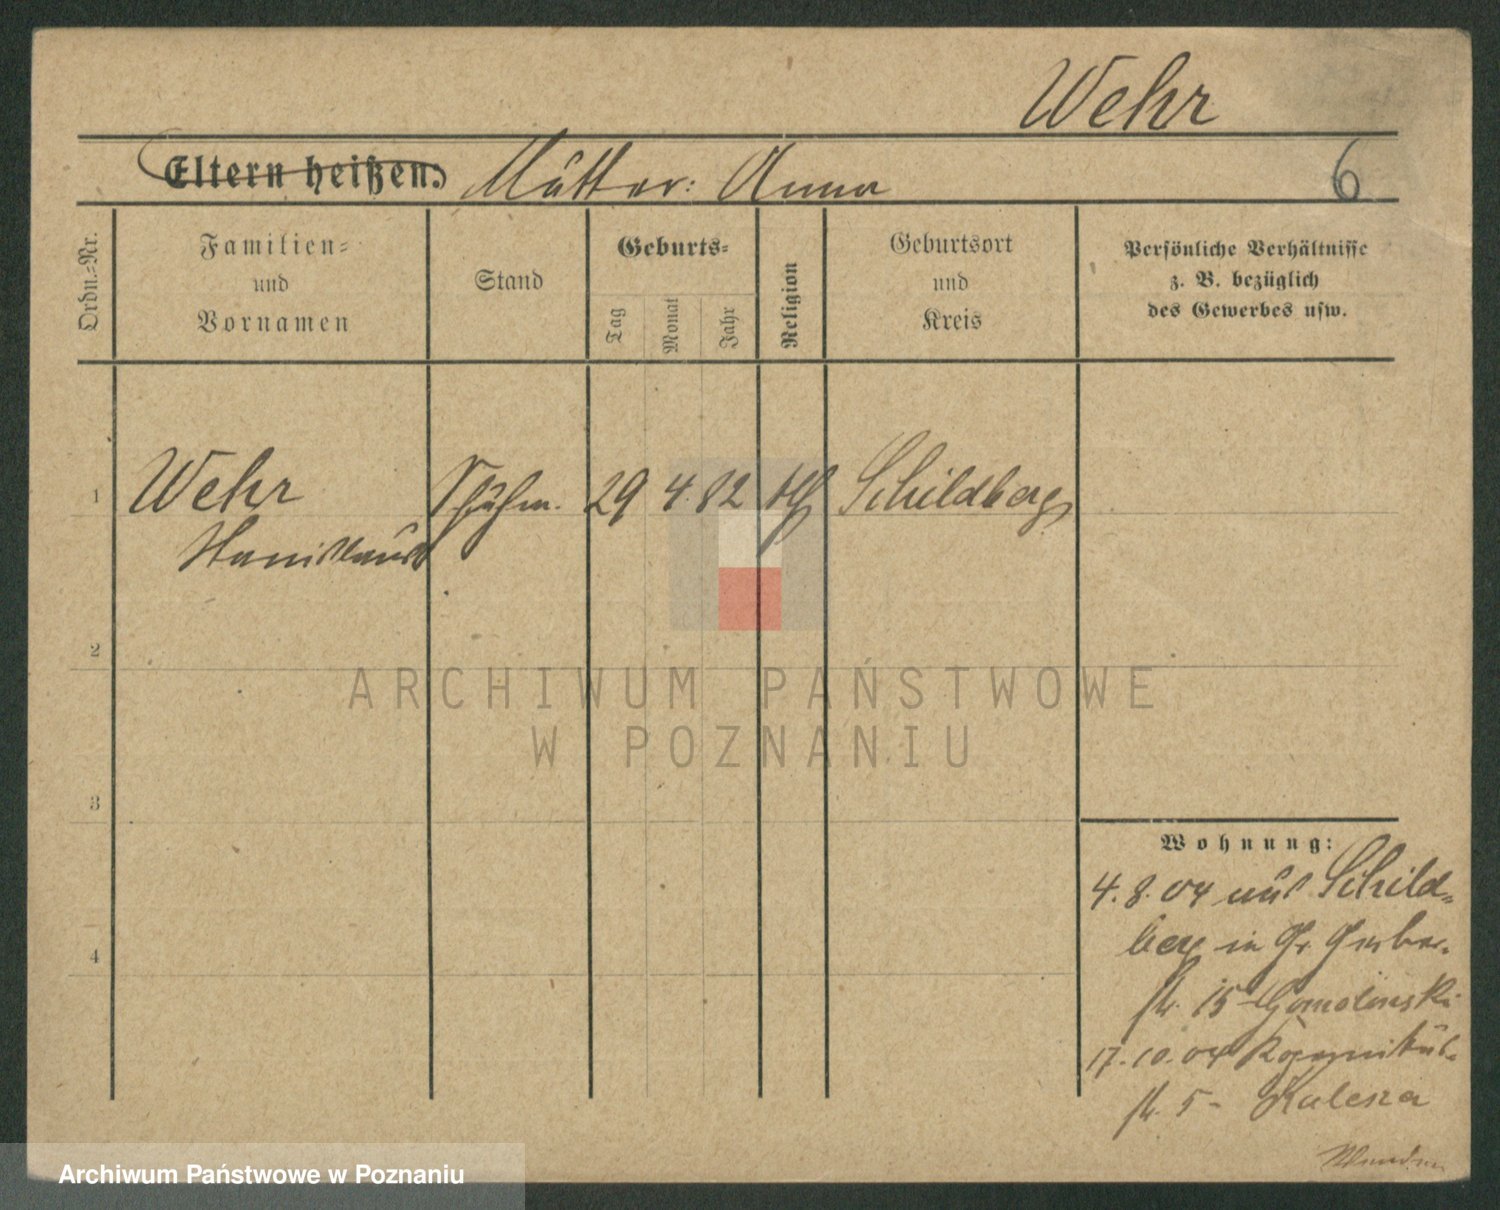 Wehr
Eltern heißen: Mutter: Anna
6
Ordn.-Nr.
Familien-
und
Vornamen
Stand
Geburts-
Tag
Monat
Jahr
Religion
Geburtsort
und
Kreis
Persönliche Verhältnisse
z. B. bezüglich
des Gewerbes usw.
1 Wehr Schuhm. 29 4. 82 kth Schildberg
Stanislaus
2
3
4
ARCHIWUM PAŃSTWOWE
W POZNANIU
Wohnung:
4.8.04 aus Schild-
berg in Gr. Gerber-
str. 15
17.10.04 Kopernikus-
str. 5 - Kulesza
Archiwum Państwowe w Poznaniu